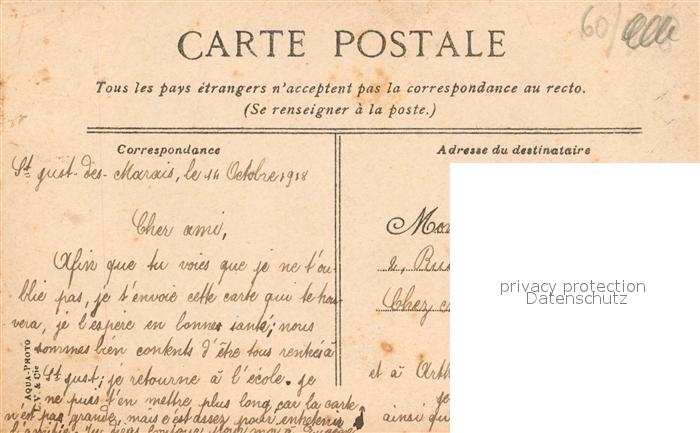 60/
CARTE POSTALE
Tous les pays étrangers n'acceptent pas la correspondance au recto.
(Se renseigner à la poste.)
Correspondance
St just-des-Marais, le 14 Octobre 1918
Cher ami,
Afin que tu voies que je ne t'ou-
blie pas, je t'envoie cette carte qui te trou-
vera, je l'espère en bonne santé; nous
sommes bien contents d'être tous rentrés à
St just; je retourne à l'école. je
ne puis t'en mettre plus long car la carte
n'est pas grande, mais c'est assez pour entretenir
l'amitié.
AQUA-PHOTO
L.V. & Cie
Adresse du destinataire
2, Rue
Chez
et à
je
ainsi
privacy protection
Datenschutz